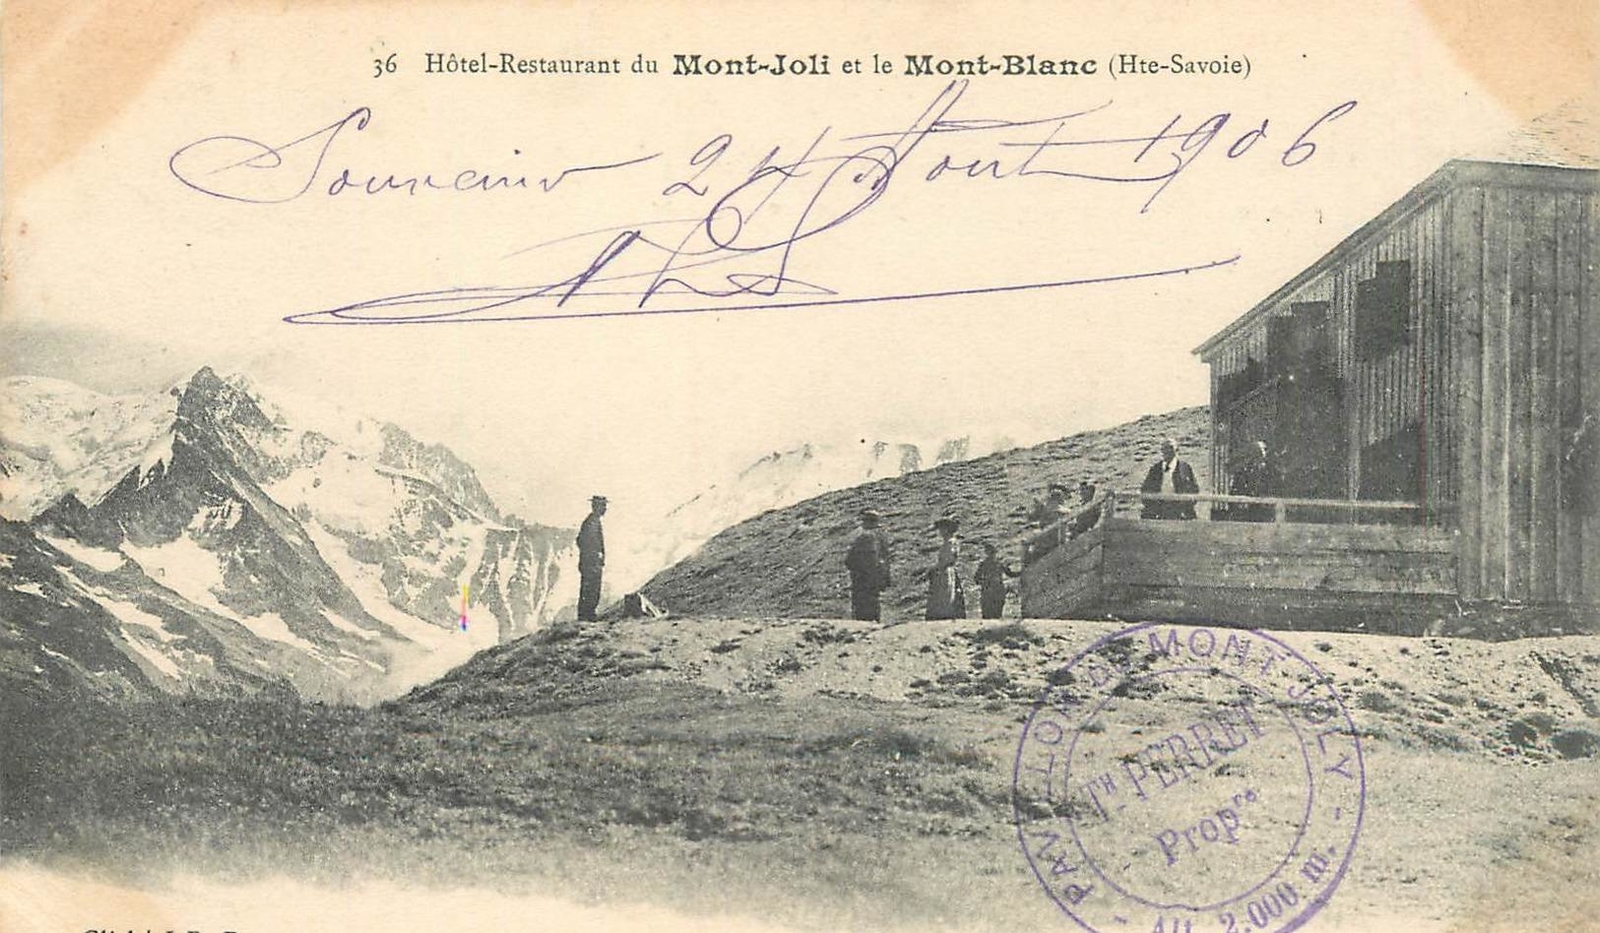 36 Hôtel-Restaurant du Mont-Joli et le Mont-Blanc (Hte-Savoie)
Souvenir 24 Aout 1906
PAVILLON DU MONT JOLY
TH PERRET
Propre
Alt 2.000 m.
Cliché